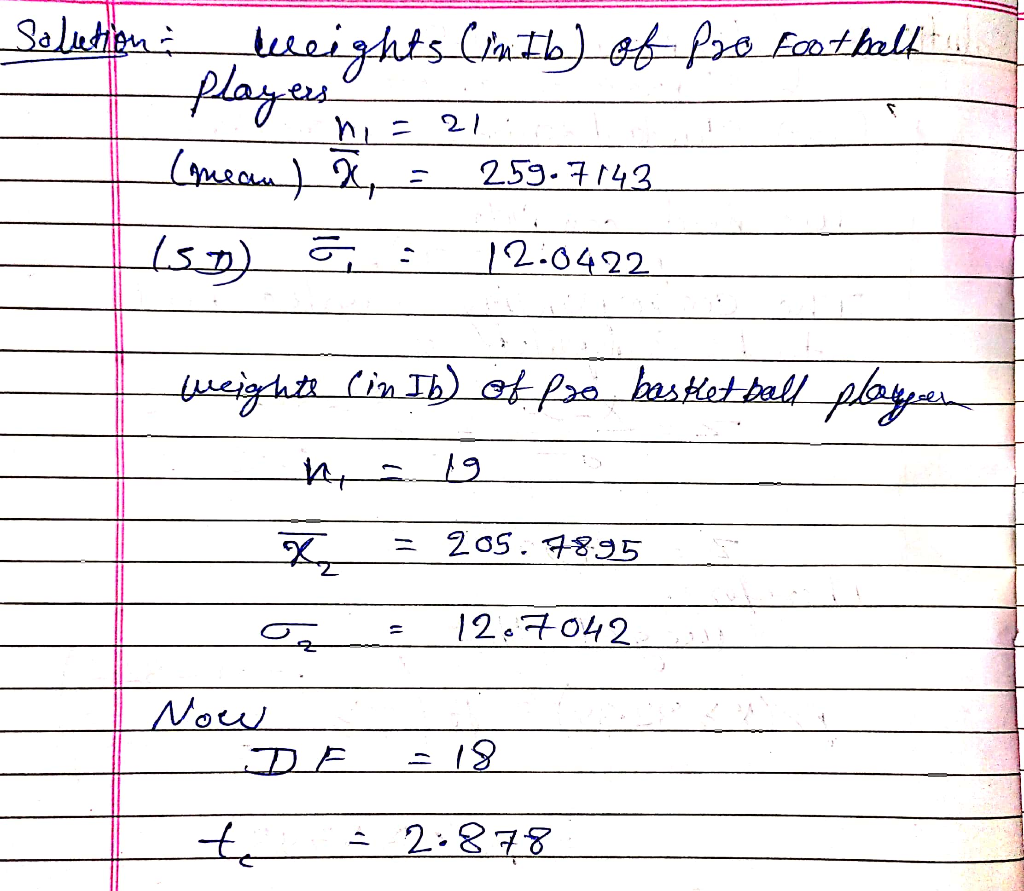 Solution : weights (in Ib) of Pro Football
players
n₁ = 21
(mean) x̄₁ = 259.7143
(SD) σ̄₁ : 12.0422
weights (in Ib) of Pro basketball player
n₁ = 19
x̄₂ = 205.7895
σ₂ = 12.7042
Now
DF = 18
t꜀ = 2.878